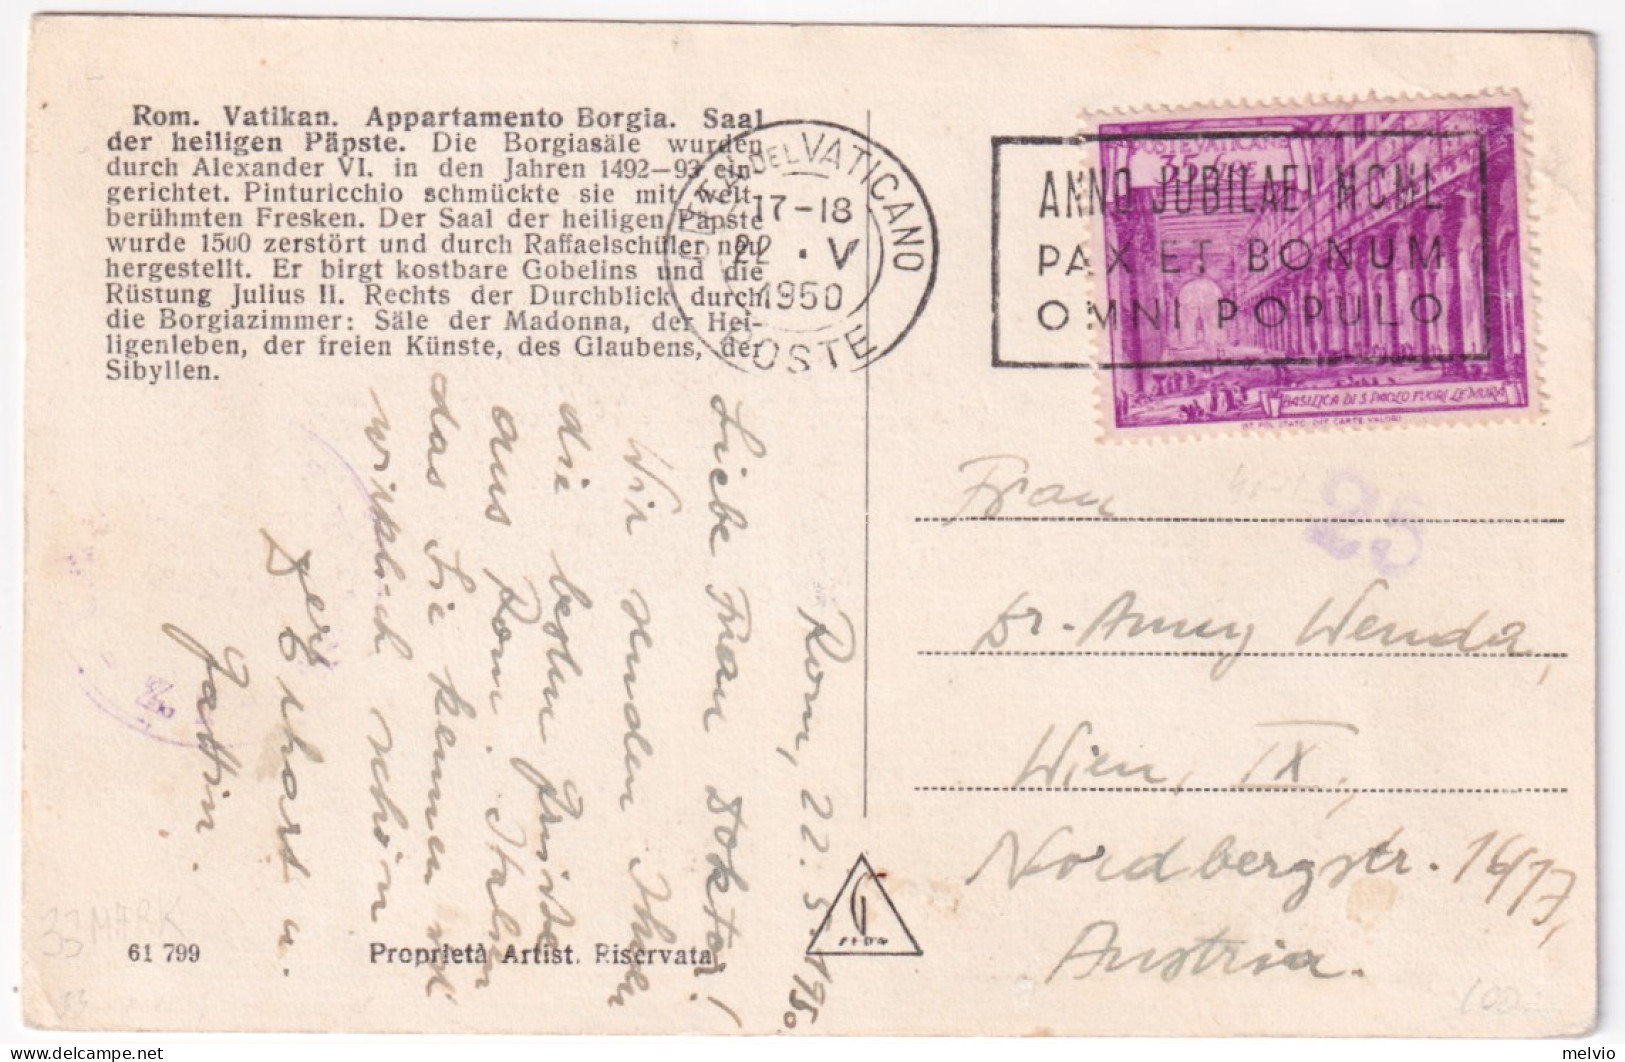 Rom. Vatikan. Appartamento Borgia. Saal
der heiligen Päpste. Die Borgiasäle wurden
durch Alexander VI. in den Jahren 1492-93 ein-
gerichtet. Pinturicchio schmückte sie mit welt-
berühmten Fresken. Der Saal der heiligen Päpste
wurde 1500 zerstört und durch Raffaelschüler neu
hergestellt. Er birgt kostbare Gobelins und die
Rüstung Julius II. Rechts der Durchblick durch
die Borgiazimmer: Säle der Madonna, der Hei-
ligenleben, der freien Künste, des Glaubens, der
Sibyllen.
CITTÀ DEL VATICANO
17-18
22 · V
1950
POSTE
POSTE VATICANE
ANNO JUBILAEI MCML
PAX ET BONUM
OMNI POPULO
BASILICA DI S. PAOLO FUORI LE MURA
IST. POL. STATO OFF. CARTE VALORI
Rom, 22.5.1950.
Liebe Frau Doktor!
Wir senden Ihnen
die besten Grüsse
aus Rom. Italien
das Sie kennen ist
wirklich schön
Der Erhart u.
Gattin.
25
Frau
Dr. Anny Wenda,
Wien, IX,
Nordbergstr. 16/17,
Austria.
33 MARK
33
61 799
Proprietà Artist. Riservata
100
melvio